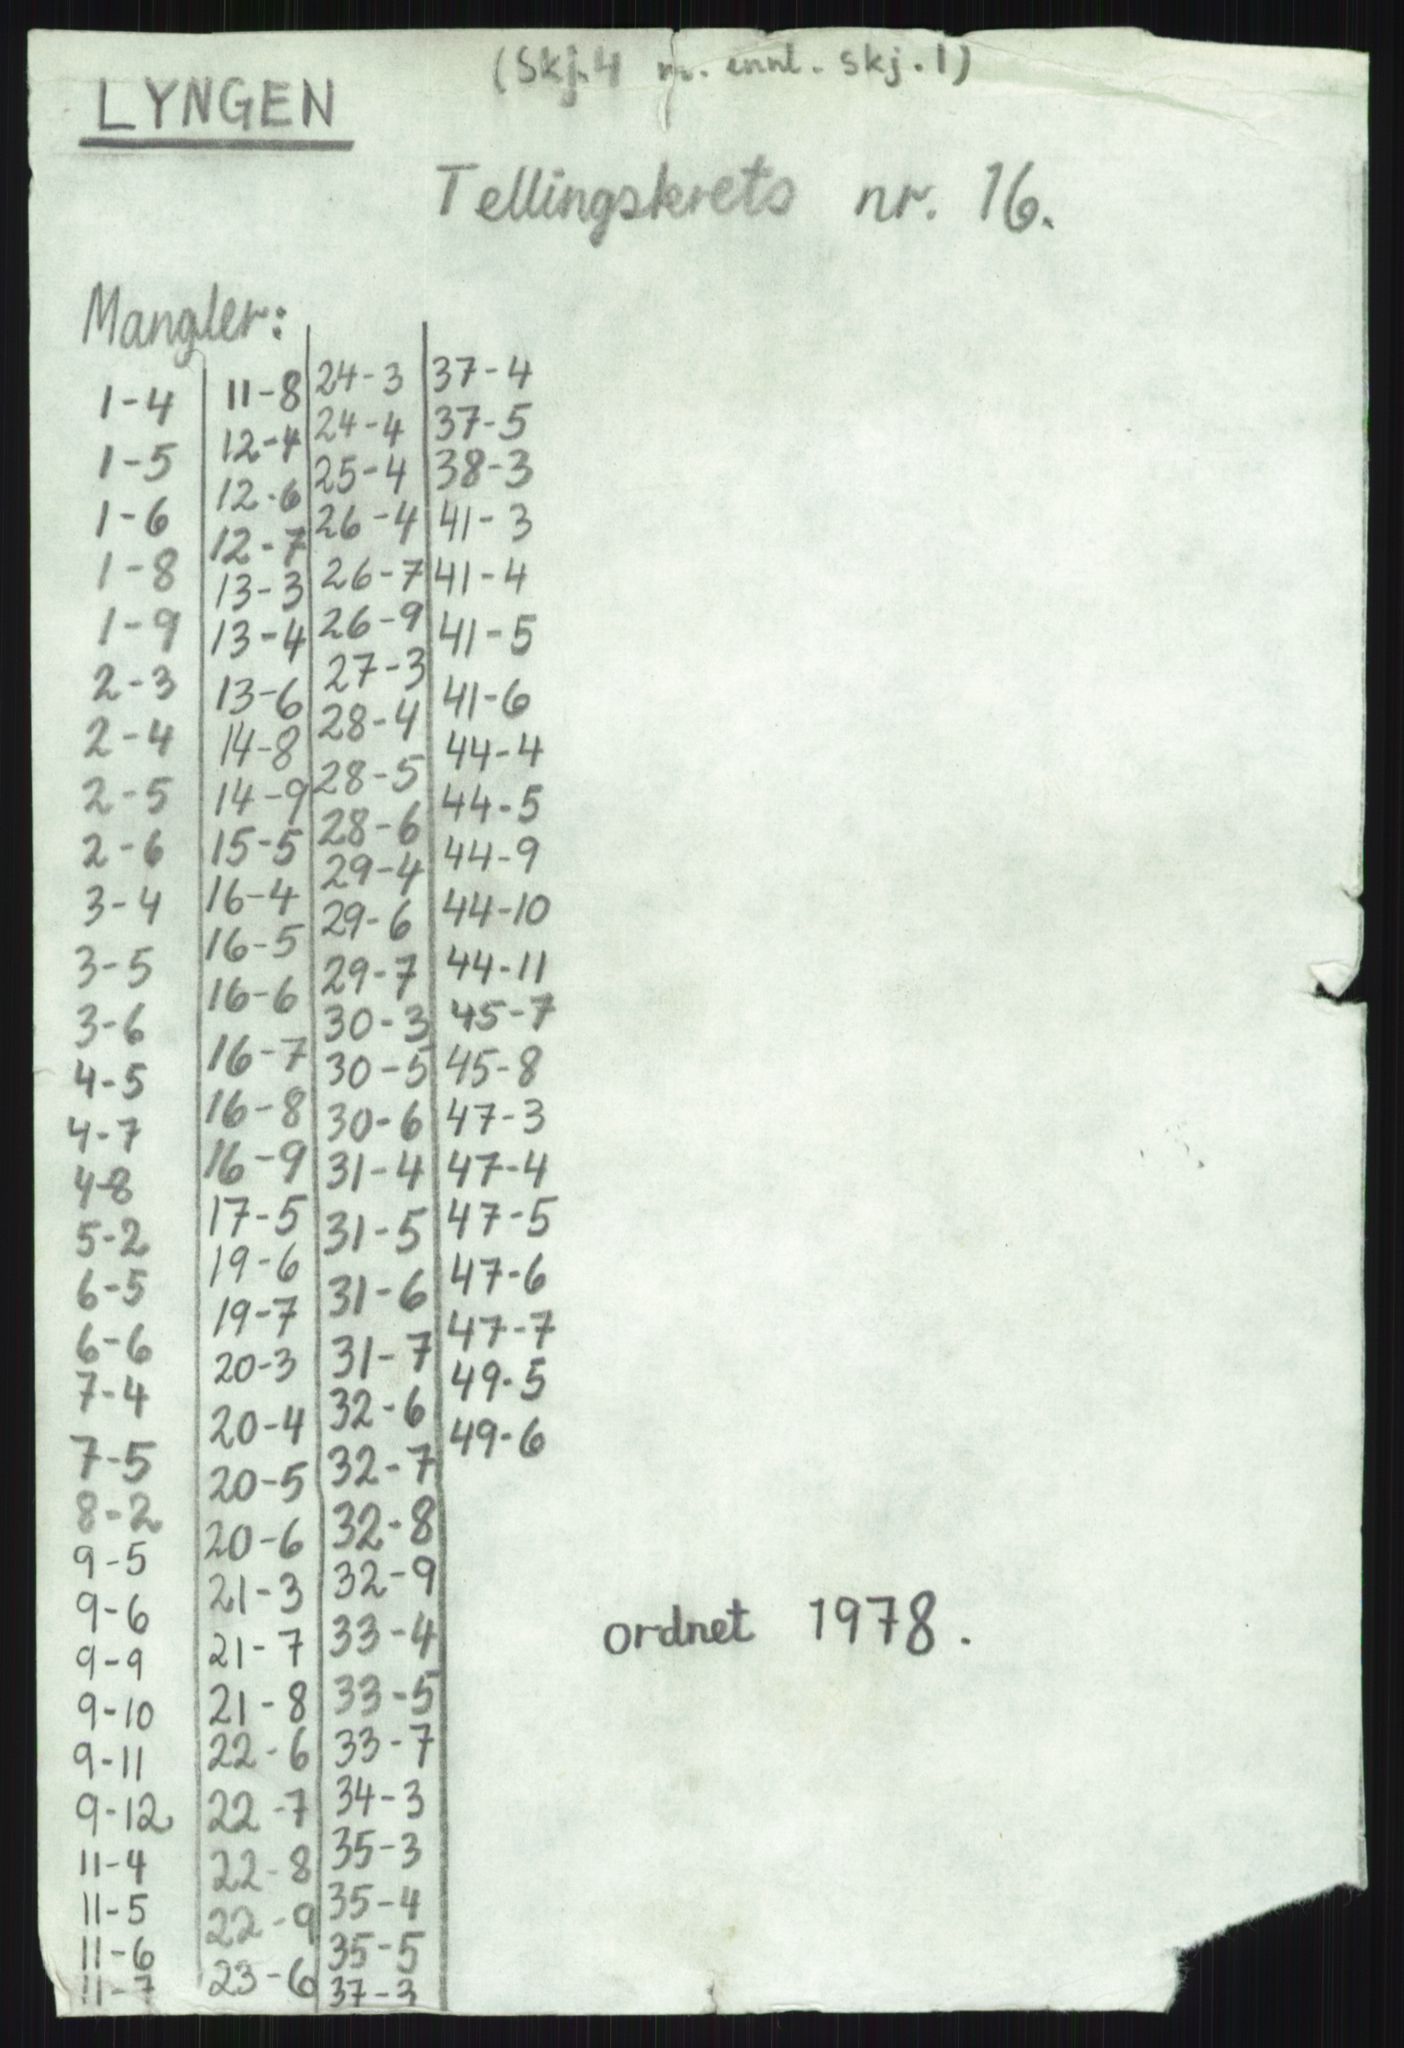 (Skj. 4 m. innl. skj. 1)
LYNGEN
Tellingskrets nr. 16.
Mangler:
1-4
1-5
1-6
1-8
1-9
2-3
2-4
2-5
2-6
3-4
3-5
3-6
4-5
4-7
4-8
5-2
6-5
6-6
7-4
7-5
8-2
9-5
9-6
9-9
9-10
9-11
9-12
11-4
11-5
11-6
11-7
11-8
12-4
12-6
12-7
13-3
13-4
13-6
14-8
14-9
15-5
16-4
16-5
16-6
16-7
16-8
16-9
17-5
19-6
19-7
20-3
20-4
20-5
20-6
21-3
21-7
21-8
22-6
22-7
22-8
22-9
23-6
24-3
24-4
25-4
26-4
26-7
26-9
27-3
28-4
28-5
28-6
29-4
29-6
29-7
30-3
30-5
30-6
31-4
31-5
31-6
31-7
32-6
32-7
32-8
32-9
33-4
33-5
33-7
34-3
35-3
35-4
35-5
37-3
37-4
37-5
38-3
41-3
41-4
41-5
41-6
44-4
44-5
44-9
44-10
44-11
45-7
45-8
47-3
47-4
47-5
47-6
47-7
49-5
49-6
ordnet 1978.